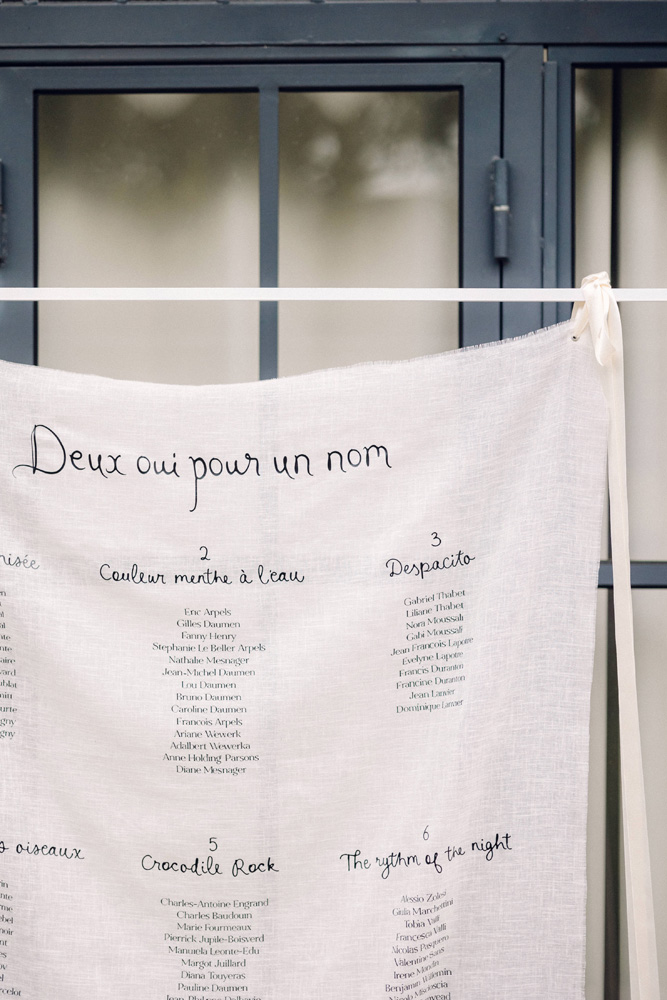 Deux oui pour un nom
2
Couleur menthe à l'eau
Eric Arpels
Gilles Daumen
Fanny Henry
Stephanie Le Beller Arpels
Nathalie Mesnager
Jean-Michel Daumen
Lou Daumen
Bruno Daumen
Caroline Daumen
Francois Arpels
Ariane Wewerk
Adalbert Wewerka
Anne Holding-Parsons
Diane Mesnager
3
Despacito
Gabriel Thabet
Liliane Thabet
Nora Moussali
Gabi Moussali
Jean Francois Lapotre
Evelyne Lapotre
Francis Duranton
Francine Duranton
Jean Lanvier
Dominique Lanvier
s oiseaux
5
Crocodile Rock
Charles-Antoine Engrand
Charles Baudouin
Marie Fourmeaux
Pierrick Jupile-Boisverd
Manuela Leonte-Edu
Margot Juillard
Diana Touveras
Pauline Daumen
6
The rythm of the night
Alessio Zolesi
Giulia Marchettini
Tobia Valli
Francesca Valli
Nicolas Pasquero
Valentine Sans
Irene Mandia
Benjamin Willemin